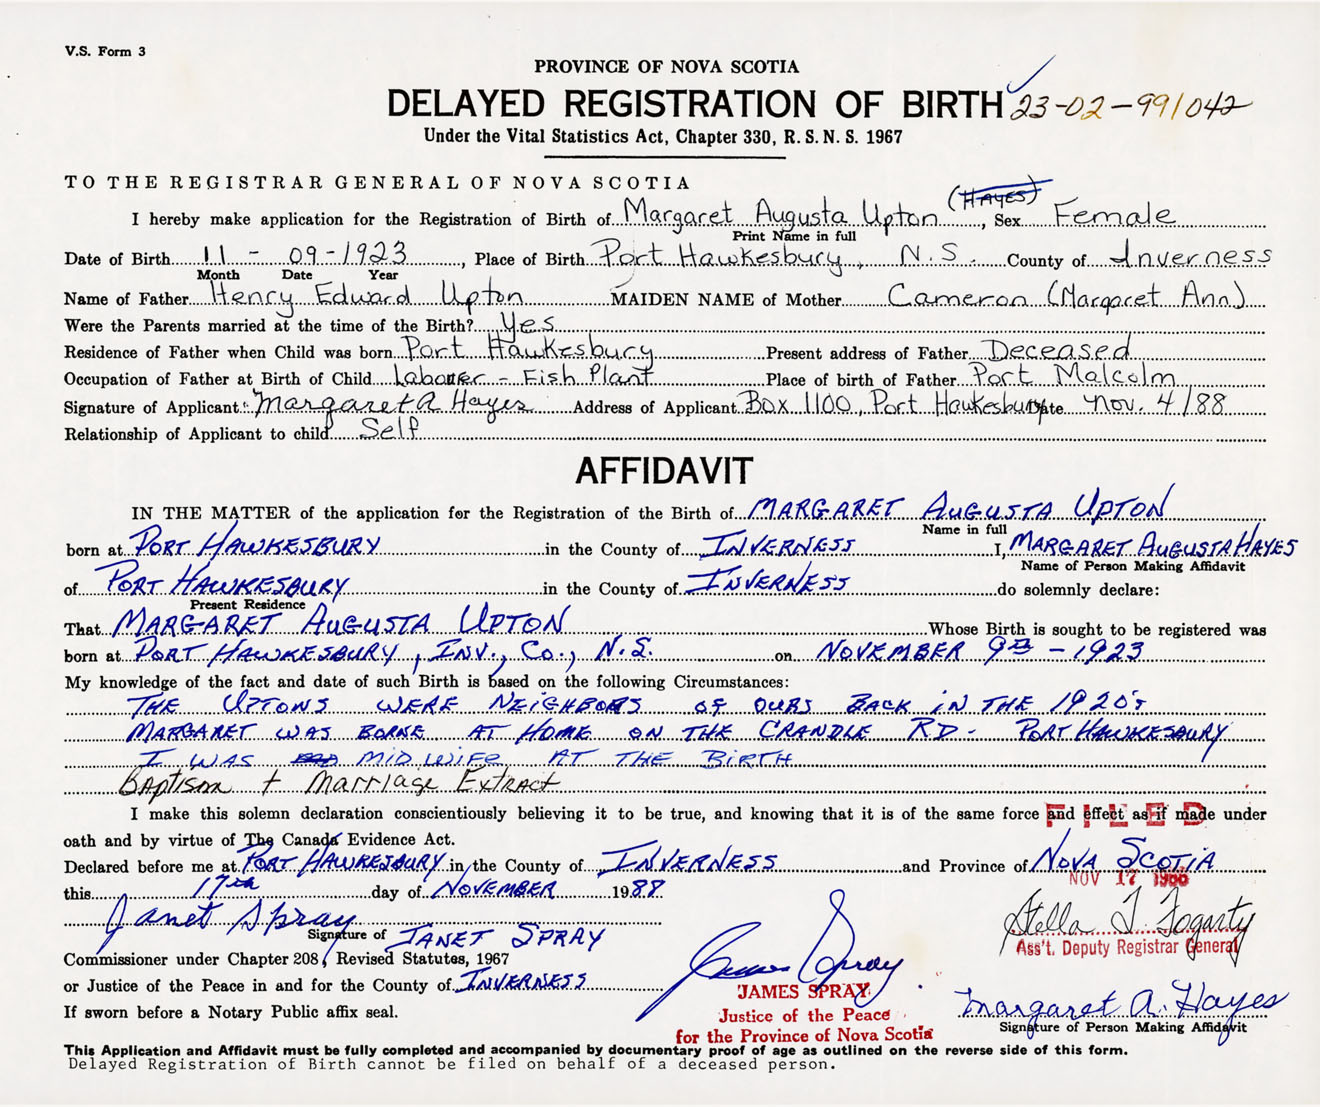 V.S. Form 3
PROVINCE OF NOVA SCOTIA
DELAYED REGISTRATION OF BIRTH 23-02-991042
Under the Vital Statistics Act, Chapter 330, R. S. N. S. 1967
TO THE REGISTRAR GENERAL OF NOVA SCOTIA
I hereby make application for the Registration of Birth of Margaret Augusta Upton (HAYES), Sex Female
Print Name in full
Date of Birth 11 - 09 - 1923, Place of Birth Port Hawkesbury, N.S. County of Inverness
Month Date Year
Name of Father Henry Edward Upton MAIDEN NAME of Mother Cameron (Margaret Ann)
Were the Parents married at the time of the Birth? Yes
Residence of Father when Child was born Port Hawkesbury Present address of Father Deceased
Occupation of Father at Birth of Child Labourer - Fish Plant Place of birth of Father Port Malcolm
Signature of Applicant Margaret A Hayes Address of Applicant Box 1100, Port Hawkesbury Date Nov. 4/88
Relationship of Applicant to child Self
AFFIDAVIT
IN THE MATTER of the application for the Registration of the Birth of MARGARET AUGUSTA UPTON
Name in full
born at PORT HAWKESBURY in the County of INVERNESS I, MARGARET AUGUSTA HAYES
Name of Person Making Affidavit
of PORT HAWKESBURY in the County of INVERNESS do solemnly declare:
Present Residence
That MARGARET AUGUSTA UPTON Whose Birth is sought to be registered was
born at PORT HAWKESBURY, INV., CO., N.S. on NOVEMBER 9TH - 1923
My knowledge of the fact and date of such Birth is based on the following Circumstances:
THE UPTONS WERE NEIGHBORS OF OURS BACK IN THE 1920's
MARGARET WAS BORNE AT HOME ON THE CRANDLE RD - PORT HAWKESBURY
I WAS MIDWIFE AT THE BIRTH
Baptism + Marriage Extract
I make this solemn declaration conscientiously believing it to be true, and knowing that it is of the same force and effect as if made under
FILED
oath and by virtue of The Canada Evidence Act.
Declared before me at PORT HAWKESBURY in the County of INVERNESS and Province of NOVA SCOTIA
NOV 17 1988
this 17th day of NOVEMBER 1988
Janet Spray
Stella T. Fogarty
Signature of JANET SPRAY
Ass't. Deputy Registrar General
Commissioner under Chapter 208, Revised Statutes, 1967
James Spray
or Justice of the Peace in and for the County of INVERNESS
JAMES SPRAY
Margaret A. Hayes
If sworn before a Notary Public affix seal.
Justice of the Peace
for the Province of Nova Scotia
Signature of Person Making Affidavit
This Application and Affidavit must be fully completed and accompanied by documentary proof of age as outlined on the reverse side of this form.
Delayed Registration of Birth cannot be filed on behalf of a deceased person.